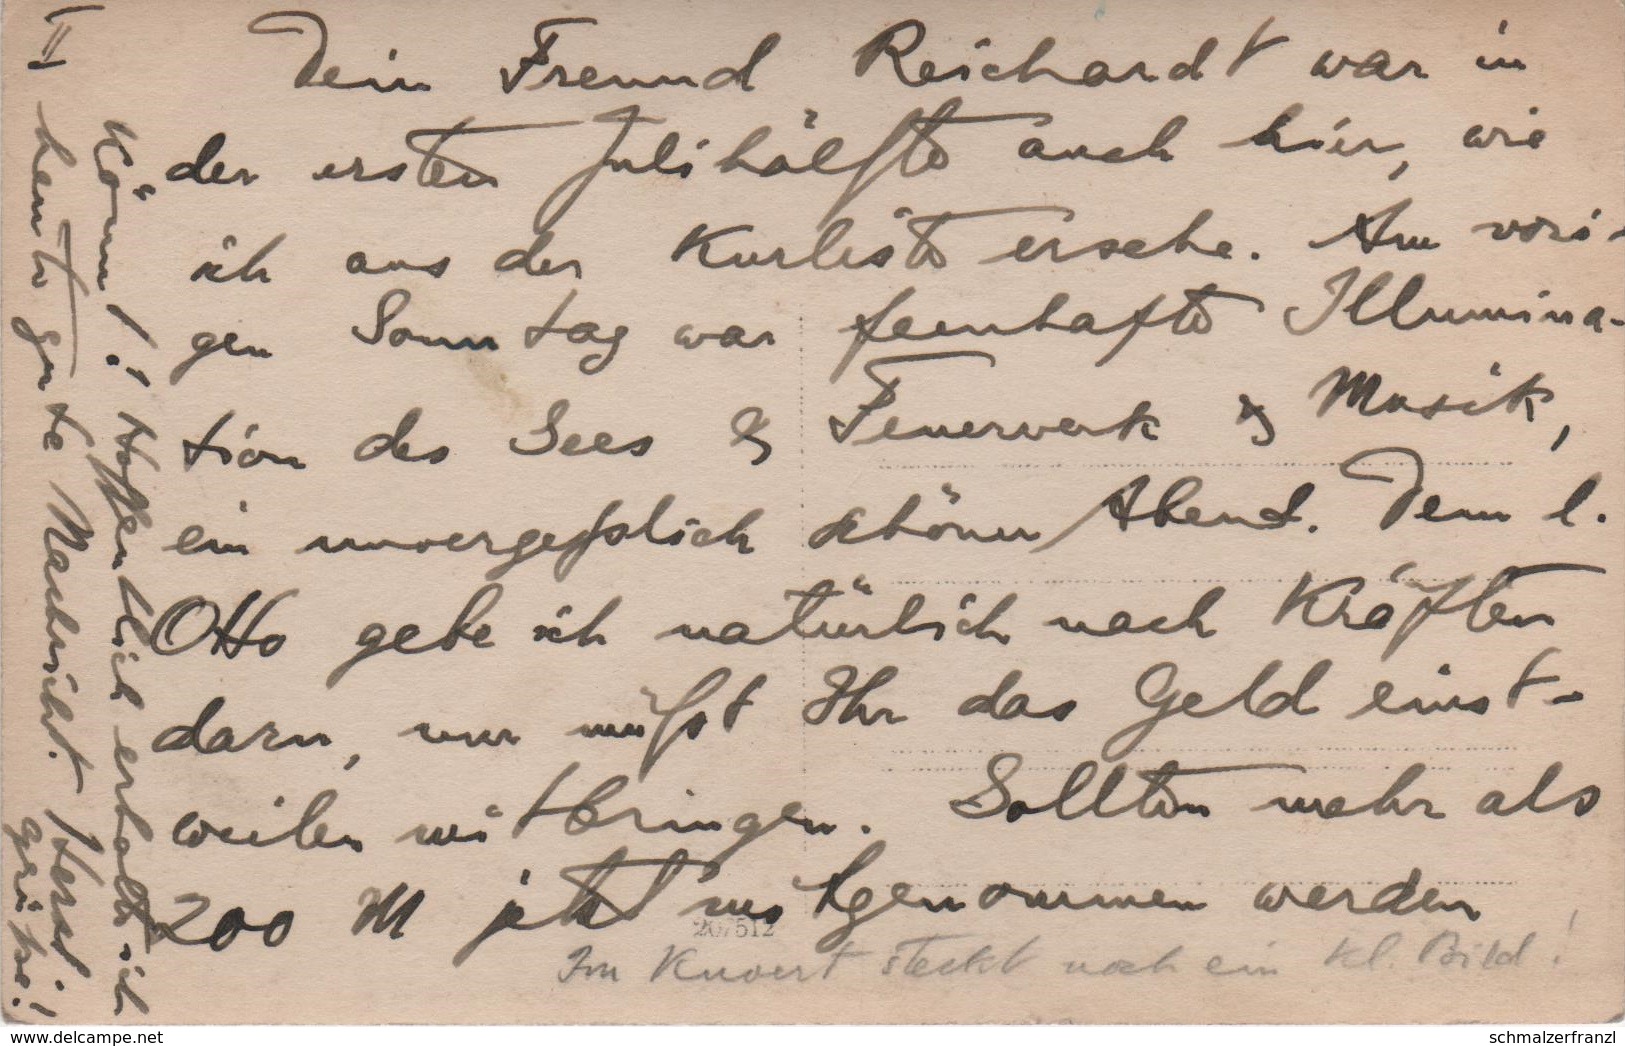 II
Dein Freund Reichardt war in
der ersten Julihälfte auch hier, wie
ich aus der Kurliste ersehe. Am vori-
gen Sonntag war feenhafte Illumina-
tion des Sees & Feuerwerk & Musik,
ein unvergeßlich schöner Abend. Dem l.
Otto gebe ich natürlich nach Kräften
darn, nur müßt Ihr das Geld einst-
weilen mitbringen. Sollten mehr als
200 M jetzt mitgenommen werden
könn! ! Hoffentlich erhalte ich
heute gute Nachricht. Herzl.
grüße!
Im Kuvert steckt noch ein kl. Bild!
207512
schmalzerfranzl
www.delcampe.net